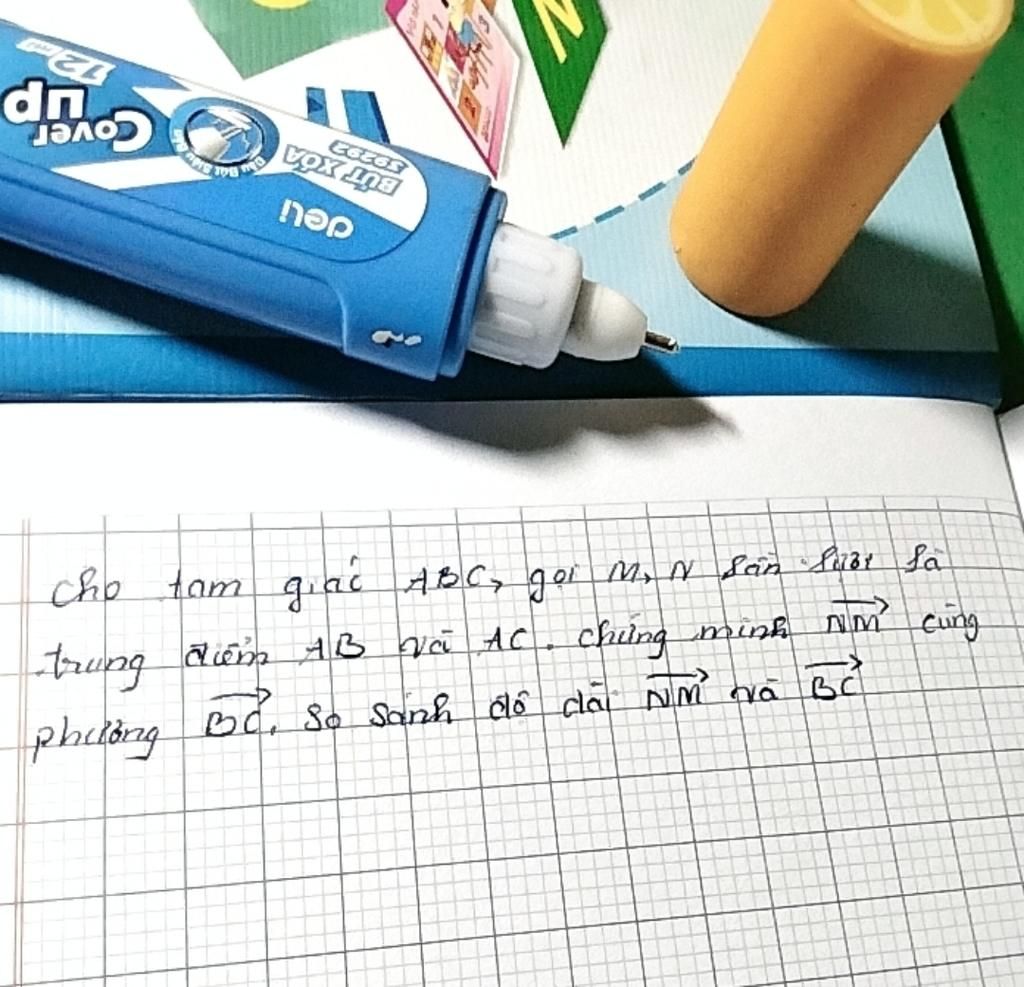 12ml
Cover
up
BÚT XÓA
39292
deli
N
Cho tam giác ABC, gọi M, N lần lượt là
trung điểm AB và AC. chứng minh NM cùng
phương BC. So sánh độ dài NM và BC